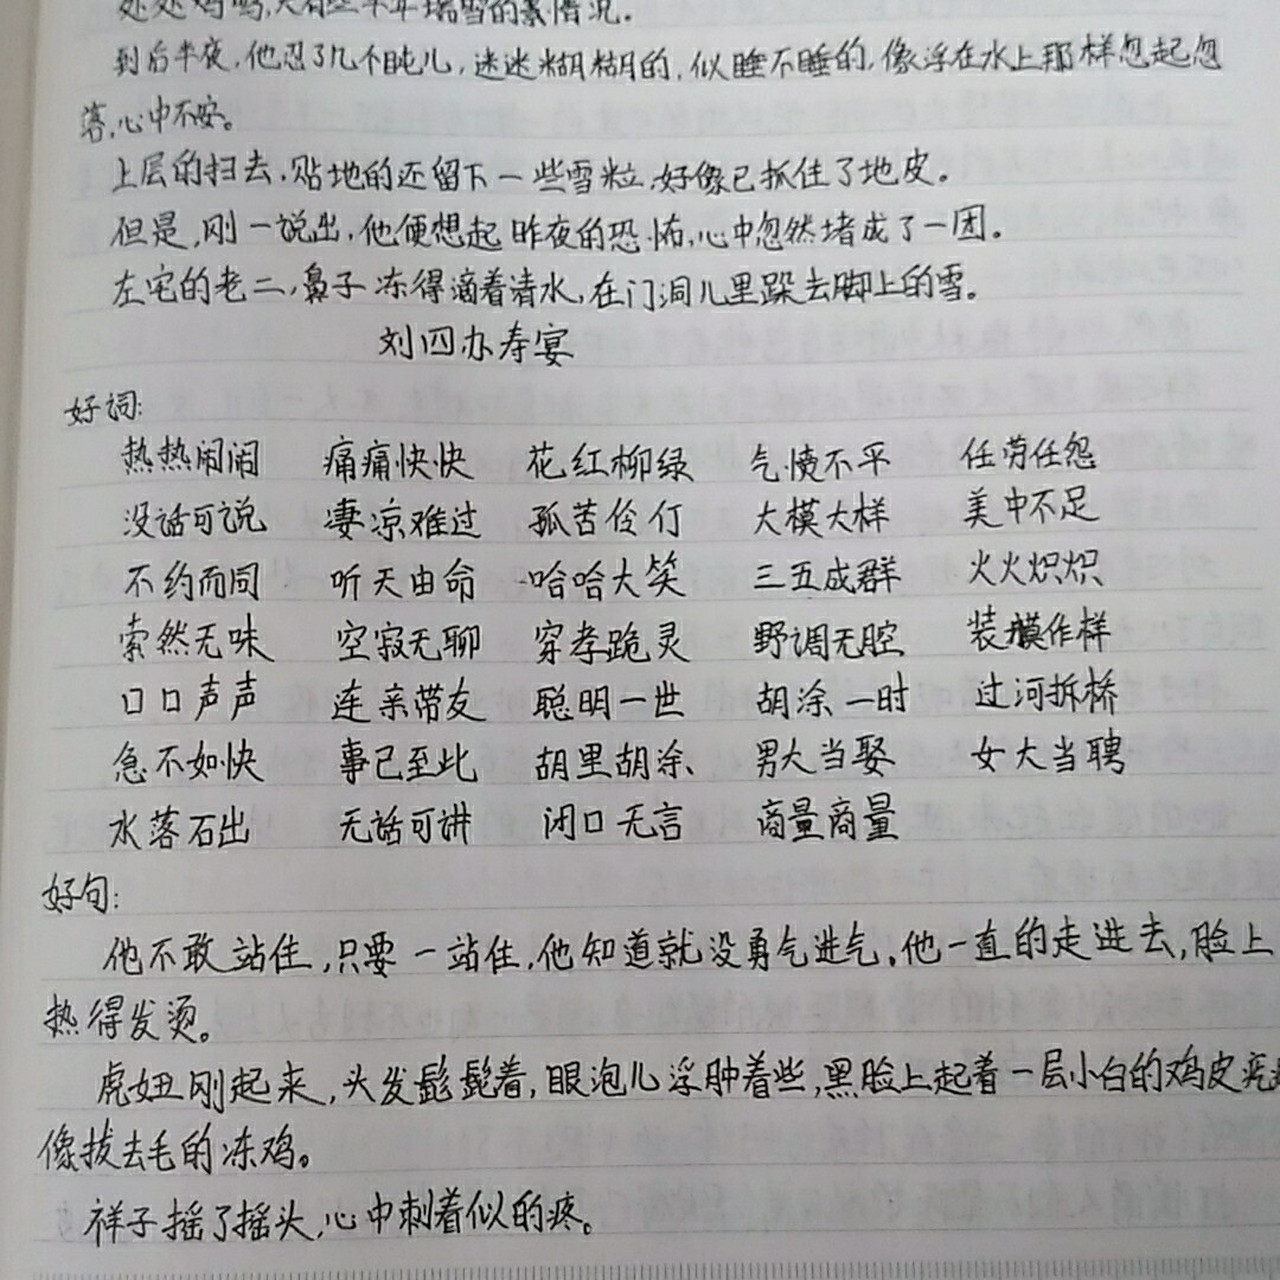 到后半夜,他忍了几个盹儿,迷迷糊糊的,似睡不睡的,像浮在水上那样忽起忽
落,心中不安。
上层的扫去,贴地的还留下一些雪粒,好像已抓住了地皮。
但是,刚一说出,他便想起昨夜的恐怖,心中忽然堵成了一团。
左宅的老二,鼻子冻得滴着清水,在门洞儿里跺去脚上的雪。
刘四办寿宴
好词:
热热闹闹 痛痛快快 花红柳绿 气愤不平 任劳任怨
没话可说 凄凉难过 孤苦伶仃 大模大样 美中不足
不约而同 听天由命 哈哈大笑 三五成群 火火炽炽
索然无味 空寂无聊 穿孝跪灵 野调无腔 装模作样
口口声声 连亲带友 聪明一世 胡涂一时 过河拆桥
急不如快 事已至此 胡里胡涂 男大当娶 女大当聘
水落石出 无话可讲 闭口无言 商量商量
好句:
他不敢站住,只要一站住,他知道就没勇气进气。他一直的走进去,脸上
热得发烫。
虎妞刚起来,头发髭髭着,眼泡儿浮肿着些,黑脸上起着一层小白的鸡皮疙
像拔去毛的冻鸡。
祥子摇了摇头,心中刺着似的疼。